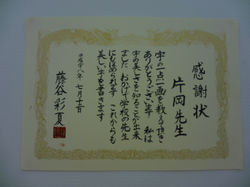 感謝状
片岡先生
字の一点一画を教えて頂き
ありがとうございます 私は
字の美しさを知ることが出来
ました おかげで学校の先生
にもほめられます これからも
美しい字を書きます
平成十八年 七月十二日
藤谷彩夏